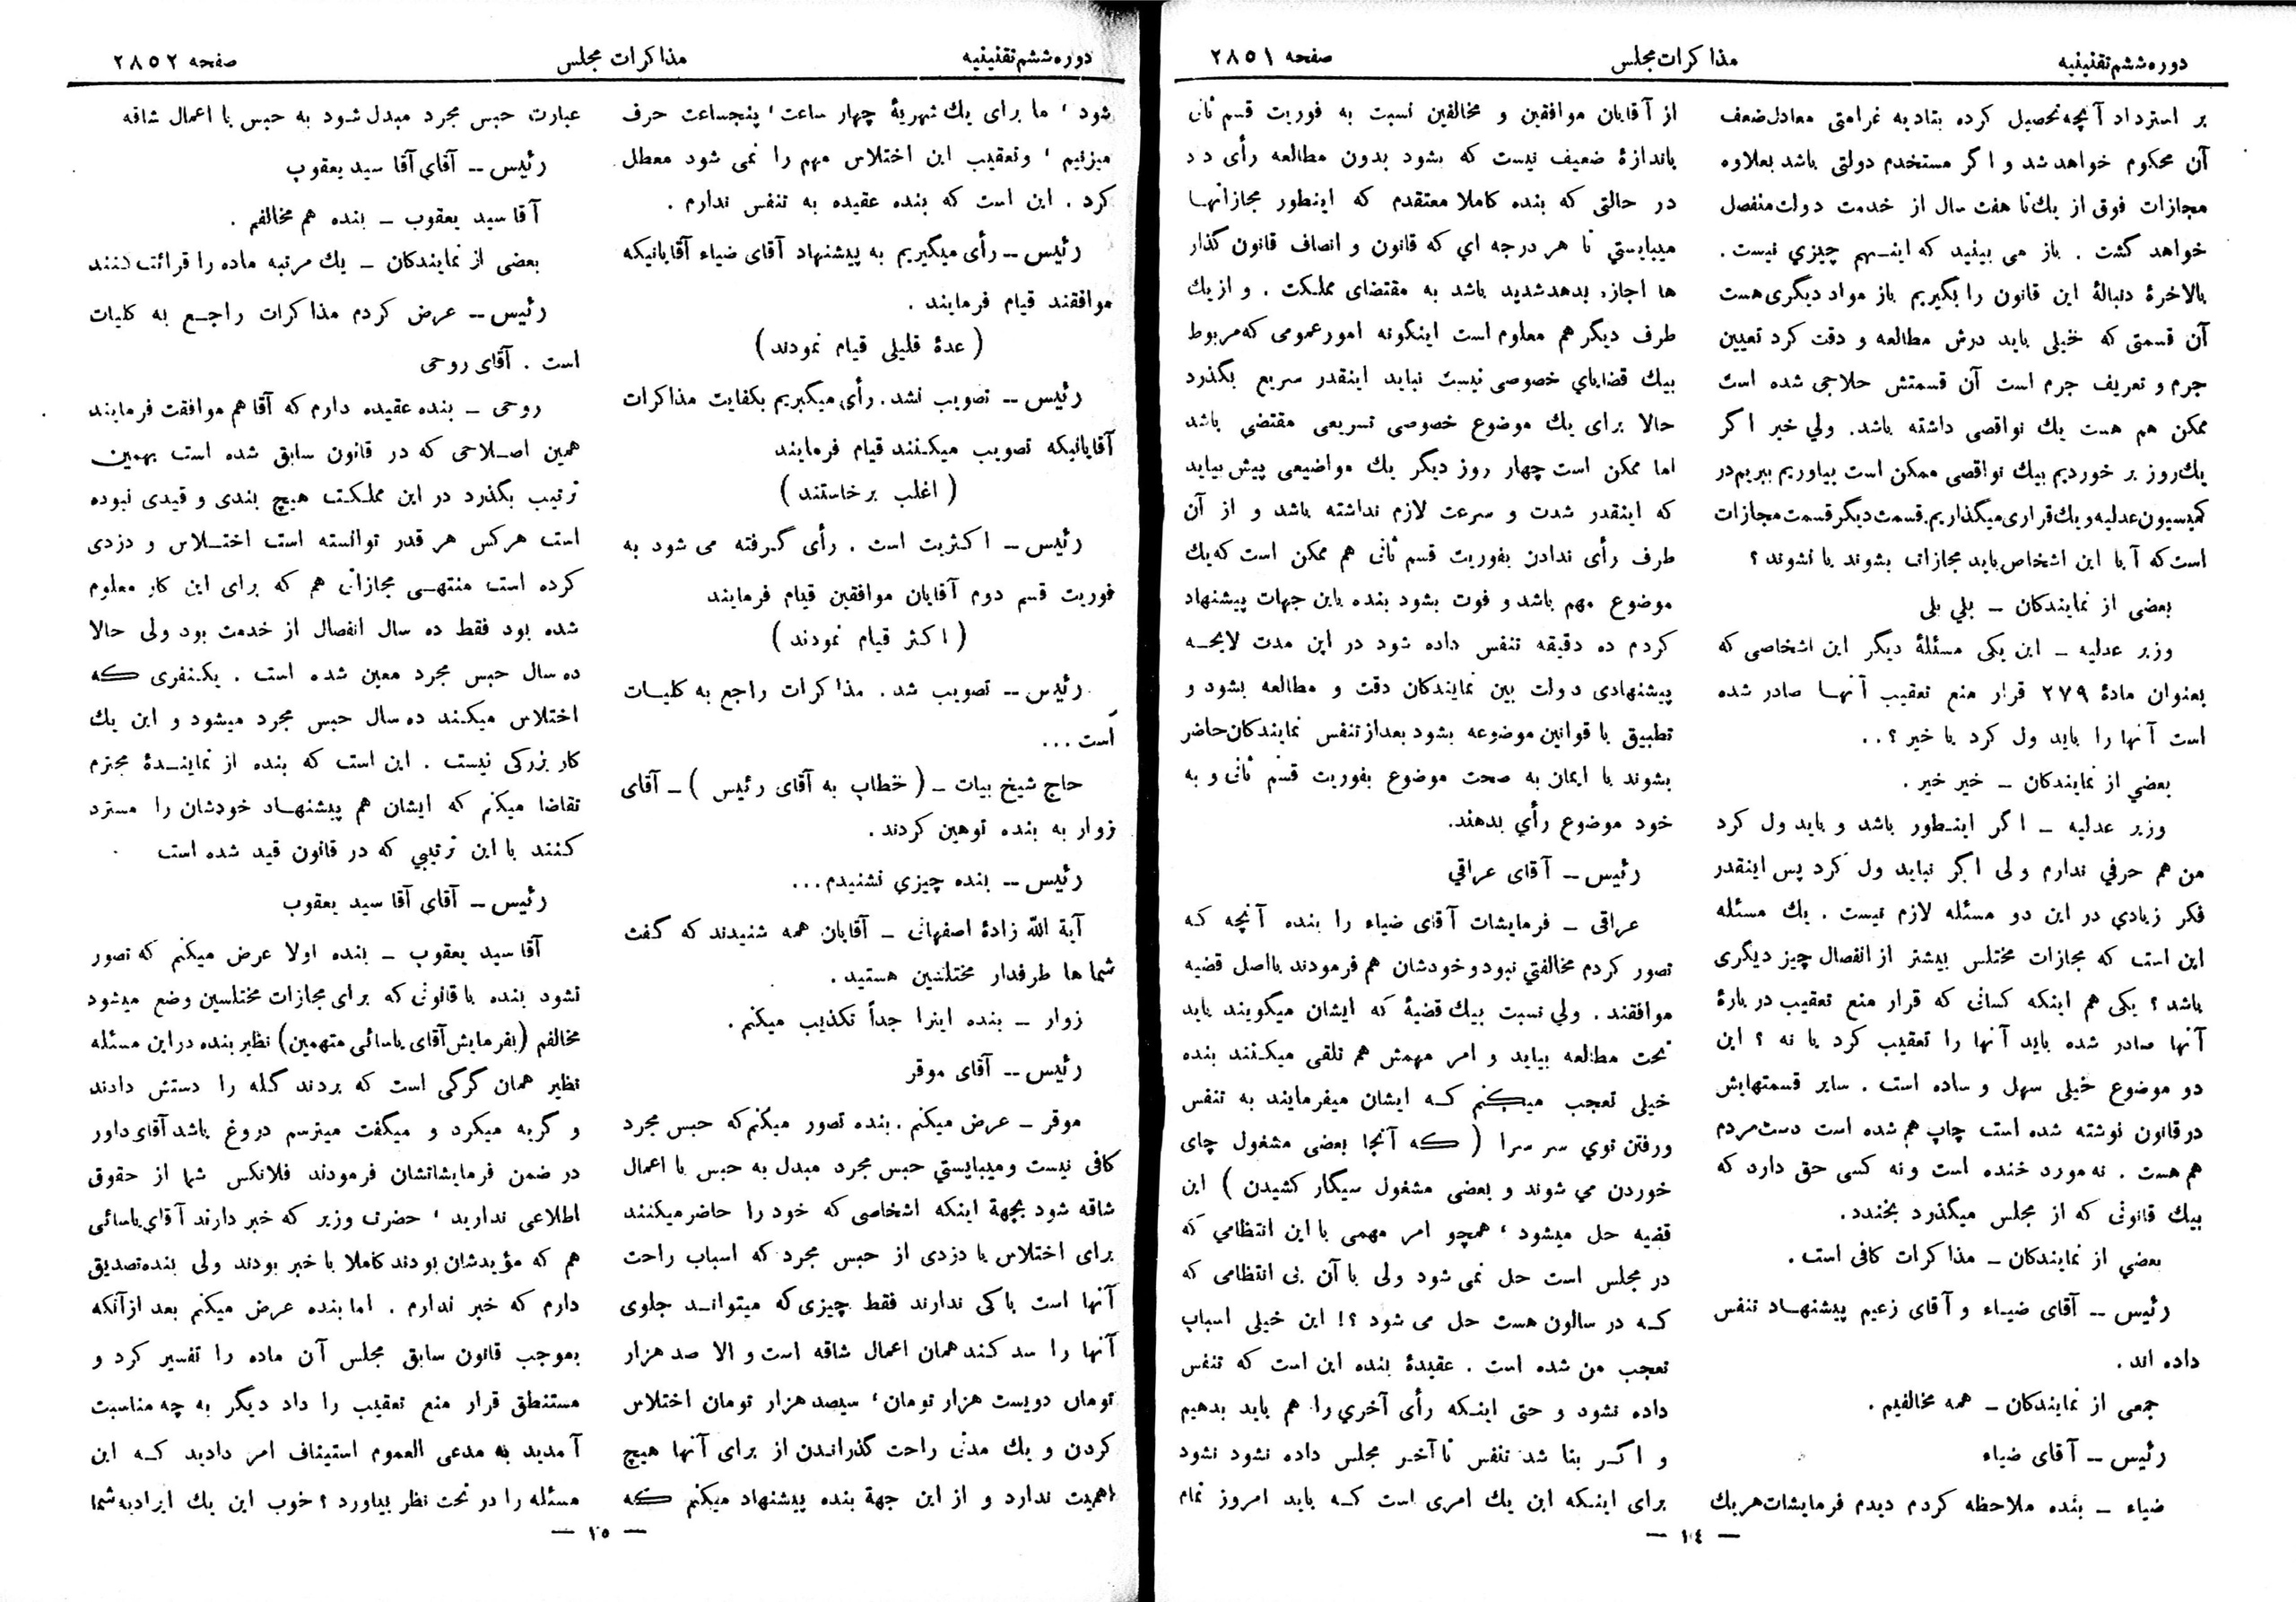 دوره ششم تقنینیه
مذاکرات مجلس
صفحه ۲۸۵۱
بر استرداد آنچه تحصیل کرده بتادیه غرامتی معادل ضعف
آن محکوم خواهد شد و اگر مستخدم دولتی باشد بعلاوه
مجازات فوق از یك تا هفت سال از خدمت دولت منفصل
خواهد گشت . باز می بینید که اینهم چیزي نیست .
بالاخرهٔ دنبالهٔ این قانون را بگیریم باز مواد دیگری هست
آن قسمتی که خیلی باید درش مطالعه و دقت کرد تعیین
جرم و تعریف جرم است آن قسمتش حلاجی شده است
ممکن هم هست یك نواقصی داشته باشد. ولي خیر اگر
یك روز بر خوردیم بیك نواقصی ممکن است بیاوریم ببریم در
کمیسیون عدلیه و یك قراری میگذاریم. قسمت دیگر قسمت مجازات
است که آیا این اشخاص باید مجازات بشوند یا نشوند ؟
بعضی از نمایندکان ــ بلي بلی
وزیر عدلیه ــ این یکی مسئلهٔ دیگر این اشخاصی که
بعنوان مادهٔ ۲۷۹ قرار منع تعقیب آنهـا صادر شده
است آنها را باید ول کرد یا خیر ؟ . .
بعضي از نمایندکان ــ خیر خیر .
وزیر عدلیه ــ اگر اینـطور باشد و باید ول کرد
من هم حرفي ندارم ولی اگر نباید ول کرد پس اینقدر
فکر زیادي در این دو مسئله لازم نیست . یك مسئله
این است که مجازات مختلس بیشتر از انفصال چیز دیگری
باشد ؟ یکی هم اینکه کسانی که قرار منع تعقیب در بارهٔ
آنها صادر شده باید آنها را تعقیب کرد یا نه ؟ این
دو موضوع خیلی سهل و ساده است . سایر قسمتهایش
در قانون نوشته شده است چاپ هم شده است دست مردم
هم هست . نه مورد خنده است و نه کسی حق دارد که
بیك قانونی که از مجلس میگذرد بخندد.
بعضي از نمایندکان ــ مذاکرات کافی است .
رئیس ــ آقای ضیـاء و آقای زعیم پیشنهـاد تنفس
داده اند .
جمعی از نمایندکان ــ همه مخالفیم .
رئیس ــ آقای ضیاء
ضیاء ــ بنده ملاحظه کردم دیدم فرمایشات هر یك
از آقایان موافقین و مخالفین نسبت به فوریت قسم ثانی
باندازهٔ ضعیف نیست که بشود بدون مطالعه رأی داد
در حالتی که بنده کاملا معتقدم که اینطور مجازاتهـا
میبایستي تا هر درجه اي که قانون و انصاف قانون گذار
ها اجازه بدهد شدید باشد به مقتضای مملکت . و از یك
طرف دیگر هم معلوم است اینگونه امور عمومی که مربوط
بیك قضایاي خصوصی نیست نباید اینقدر سریع بگذرد
حالا برای یك موضوع خصوصی تسریعی مقتضی باشد
اما ممکن است چهار روز دیگر یك مواضیعی پیش بیاید
که اینقدر شدت و سرعت لازم نداشته باشد و از آن
طرف رأی ندادن بفوریت قسم ثانی هم ممکن است که یك
موضوع مهم باشد و فوت بشود بنده باین جهات پیشنهاد
کردم ده دقیقه تنفس داده شود در این مدت لایحـه
پیشنهادی دولت بین نمایندکان دقت و مطالعه بشود و
تطبیق با قوانین موضوعه بشود بعد از تنفس نمایندکان حاضر
بشوند با ایمان به صحت موضوع بفوریت قسم ثانی و به
خود موضوع رأي بدهند.
رئیس ــ آقای عراقي
عراقی ــ فرمایشات آقای ضیاء را بنده آنچه کـه
تصور کردم مخالفتي نبود و خودشان هم فرمودند بااصل قضیه
موافقند . ولي نسبت بیك قضیهٔ که ایشان میگویند باید
تحت مطالعه بیاید و امر مهمش هم تلقی میکـنند بنده
خیلی تعجب میکنم کـه ایشان میفرمایند به تنفس
ورفتن توي سر سرا ( که آنجا بعضی مشغول چای
خوردن مي شوند و بعضی مشغول سیگار کشیدن ) این
قضیه حل میشود ، همچو امر مهمی با این انتظامي که
در مجلس است حل نمی شود ولی با آن بی انتظامی که
کـه در سالون هست حل می شود ؟! این خیلی اسباب
تعجب من شده است . عقیدهٔ بنده این است که تنفس
داده نشود و حتی اینـکه رأی آخري را هم باید بدهیم
و اگـر بنا شد تنفس تا آخـر مجلس داده نشود نشود
برای اینـکه این یك امری است کـه باید امروز تمام
ــ ۱٤ ــ
دوره ششم تقنینیه
مذاکرات مجلس
صفحه ۲۸۵۲
شود ، ما برای یك شهریهٔ چهار ساعت ، پنجساعت حرف
میزنیم ، وتعقیب این اختلاس مهم را نمی شود معطل
کرد . این است که بنده عقیده به تنفس ندارم .
رئیس ــ رأی میگیریم به پیشنهاد آقای ضیاء آقایانیکه
موافقند قیام فرمایند .
( عدهٔ قلیلی قیام نمودند )
رئیس ــ تصویب نشد. رأی میگیریم بکفایت مذاکرات
آقایانیکه تصویب میکـنند قیام فرمایند
( اغلب برخاستند )
رئیس ــ اکثریت است . رأی گـرفته می شود به
فوریت قسم دوم آقایان موافقین قیام فرمایند
( اکثر قیام نمودند )
رئیس ــ تصویب شد . مذاکرات راجع به کلیـات
است ...
حاج شیخ بیات ــ ( خطاب به آقای رئیس ) ــ آقای
زوار به بنده توهین کردند .
رئیس ــ بنده چیزي نشنیدم ...
آیة الله زادهٔ اصفهانی ــ آقایان همه شنیدند که گفت
شما ها طرفدار مختلسین هستید .
زوار ــ بنده اینرا جداً تکذیب میکنم .
رئیس ــ آقای موقر
موقر ــ عرض میکنم . بنده تصور میکنم که حبس مجرد
کافی نیست ومیبایستي حبس مجرد مبدل به حبس با اعمال
شاقه شود بجههٔ اینکه اشخاصی که خود را حاضر میکنند
برای اختلاس یا دزدی از حبس مجرد که اسباب راحت
آنها است باکی ندارند فقط چیزی که میتوانـد جلوی
آنها را سد کند همان اعمال شاقه است و الا صد هزار
تومان دویست هزار تومان ، سیصد هزار تومان اختلاس
کردن و یك مدتی راحت گذرانـدن از برای آنها هیچ
اهمیت ندارد و از این جههٔ بنده پیشنهاد میکنم که
عبارت حبس مجرد مبدل شود به حبس با اعمال شاقه
رئیس ــ آقای آقا سید یعقوب
آقا سید یعقوب ــ بنده هم مخالفم .
بعضی از نمایندکان ــ یك مرتبه ماده را قرائت کنند
رئیس ــ عرض کردم مذاکرات راجـع به کلیات
است . آقای روحی
روحی ــ بنده عقیده دارم که آقا هم موافقت فرمایند
همین اصـلاحی که در قانون سابق شده است بهمین
ترتیب بگذرد در این مملکت هیچ بندی و قیدی نبوده
است هرکس هر قدر توانسته است اختـلاس و دزدی
کرده است منتهـی مجازاتی هم که برای این کار معلوم
شده بود فقط ده سال انفصال از خدمت بود ولی حالا
ده سال حبس مجرد معین شده است . یکـنفری که
اختلاس میکـند ده سال حبس مجرد میشود و این یك
کار بزرکی نیست . این است که بنده از نماینـدهٔ محترم
تقاضا میکنم که ایشان هم پیشنهـاد خودشان را مسترد
کـنند با این ترتیبي که در قانون قید شده است
رئیس ــ آقای آقا سید یعقوب
آقا سید یعقوب ــ بنده اولا عرض میکنم که تصور
نشود بنده با قانونی که برای مجازات مختلسین وضع میشود
مخالفم (بفرمایش آقای یاسائی متهمین) نظیر بنده در این مسئله
نظیر همان گرگی است که بردند گله را دستش دادند
و گریه میکرد و میگفت میترسم دروغ باشد آقای داور
در ضمن فرمایشاتشان فرمودند فلانکس شما از حقوق
اطلاعی ندارید ، حضرت وزیر که خبر دارند آقای یاسائی
هم که مؤیدشان بودند کاملا با خبر بودند ولی بنده تصدیق
دارم که خبر ندارم . اما بنده عرض میکنم بعد از آنکه
بموجب قانون سابق مجلس آن ماده را تفسیر کرد و
مستنطق قرار منع تعقیب را داد دیگر به چه مناسبت
آمدید به مدعی العموم استیناف امر دادید کـه این
مسئله را در تحت نظر بیاورد ؟ خوب این یك ایراد به شما
ــ ۱۵ ــ